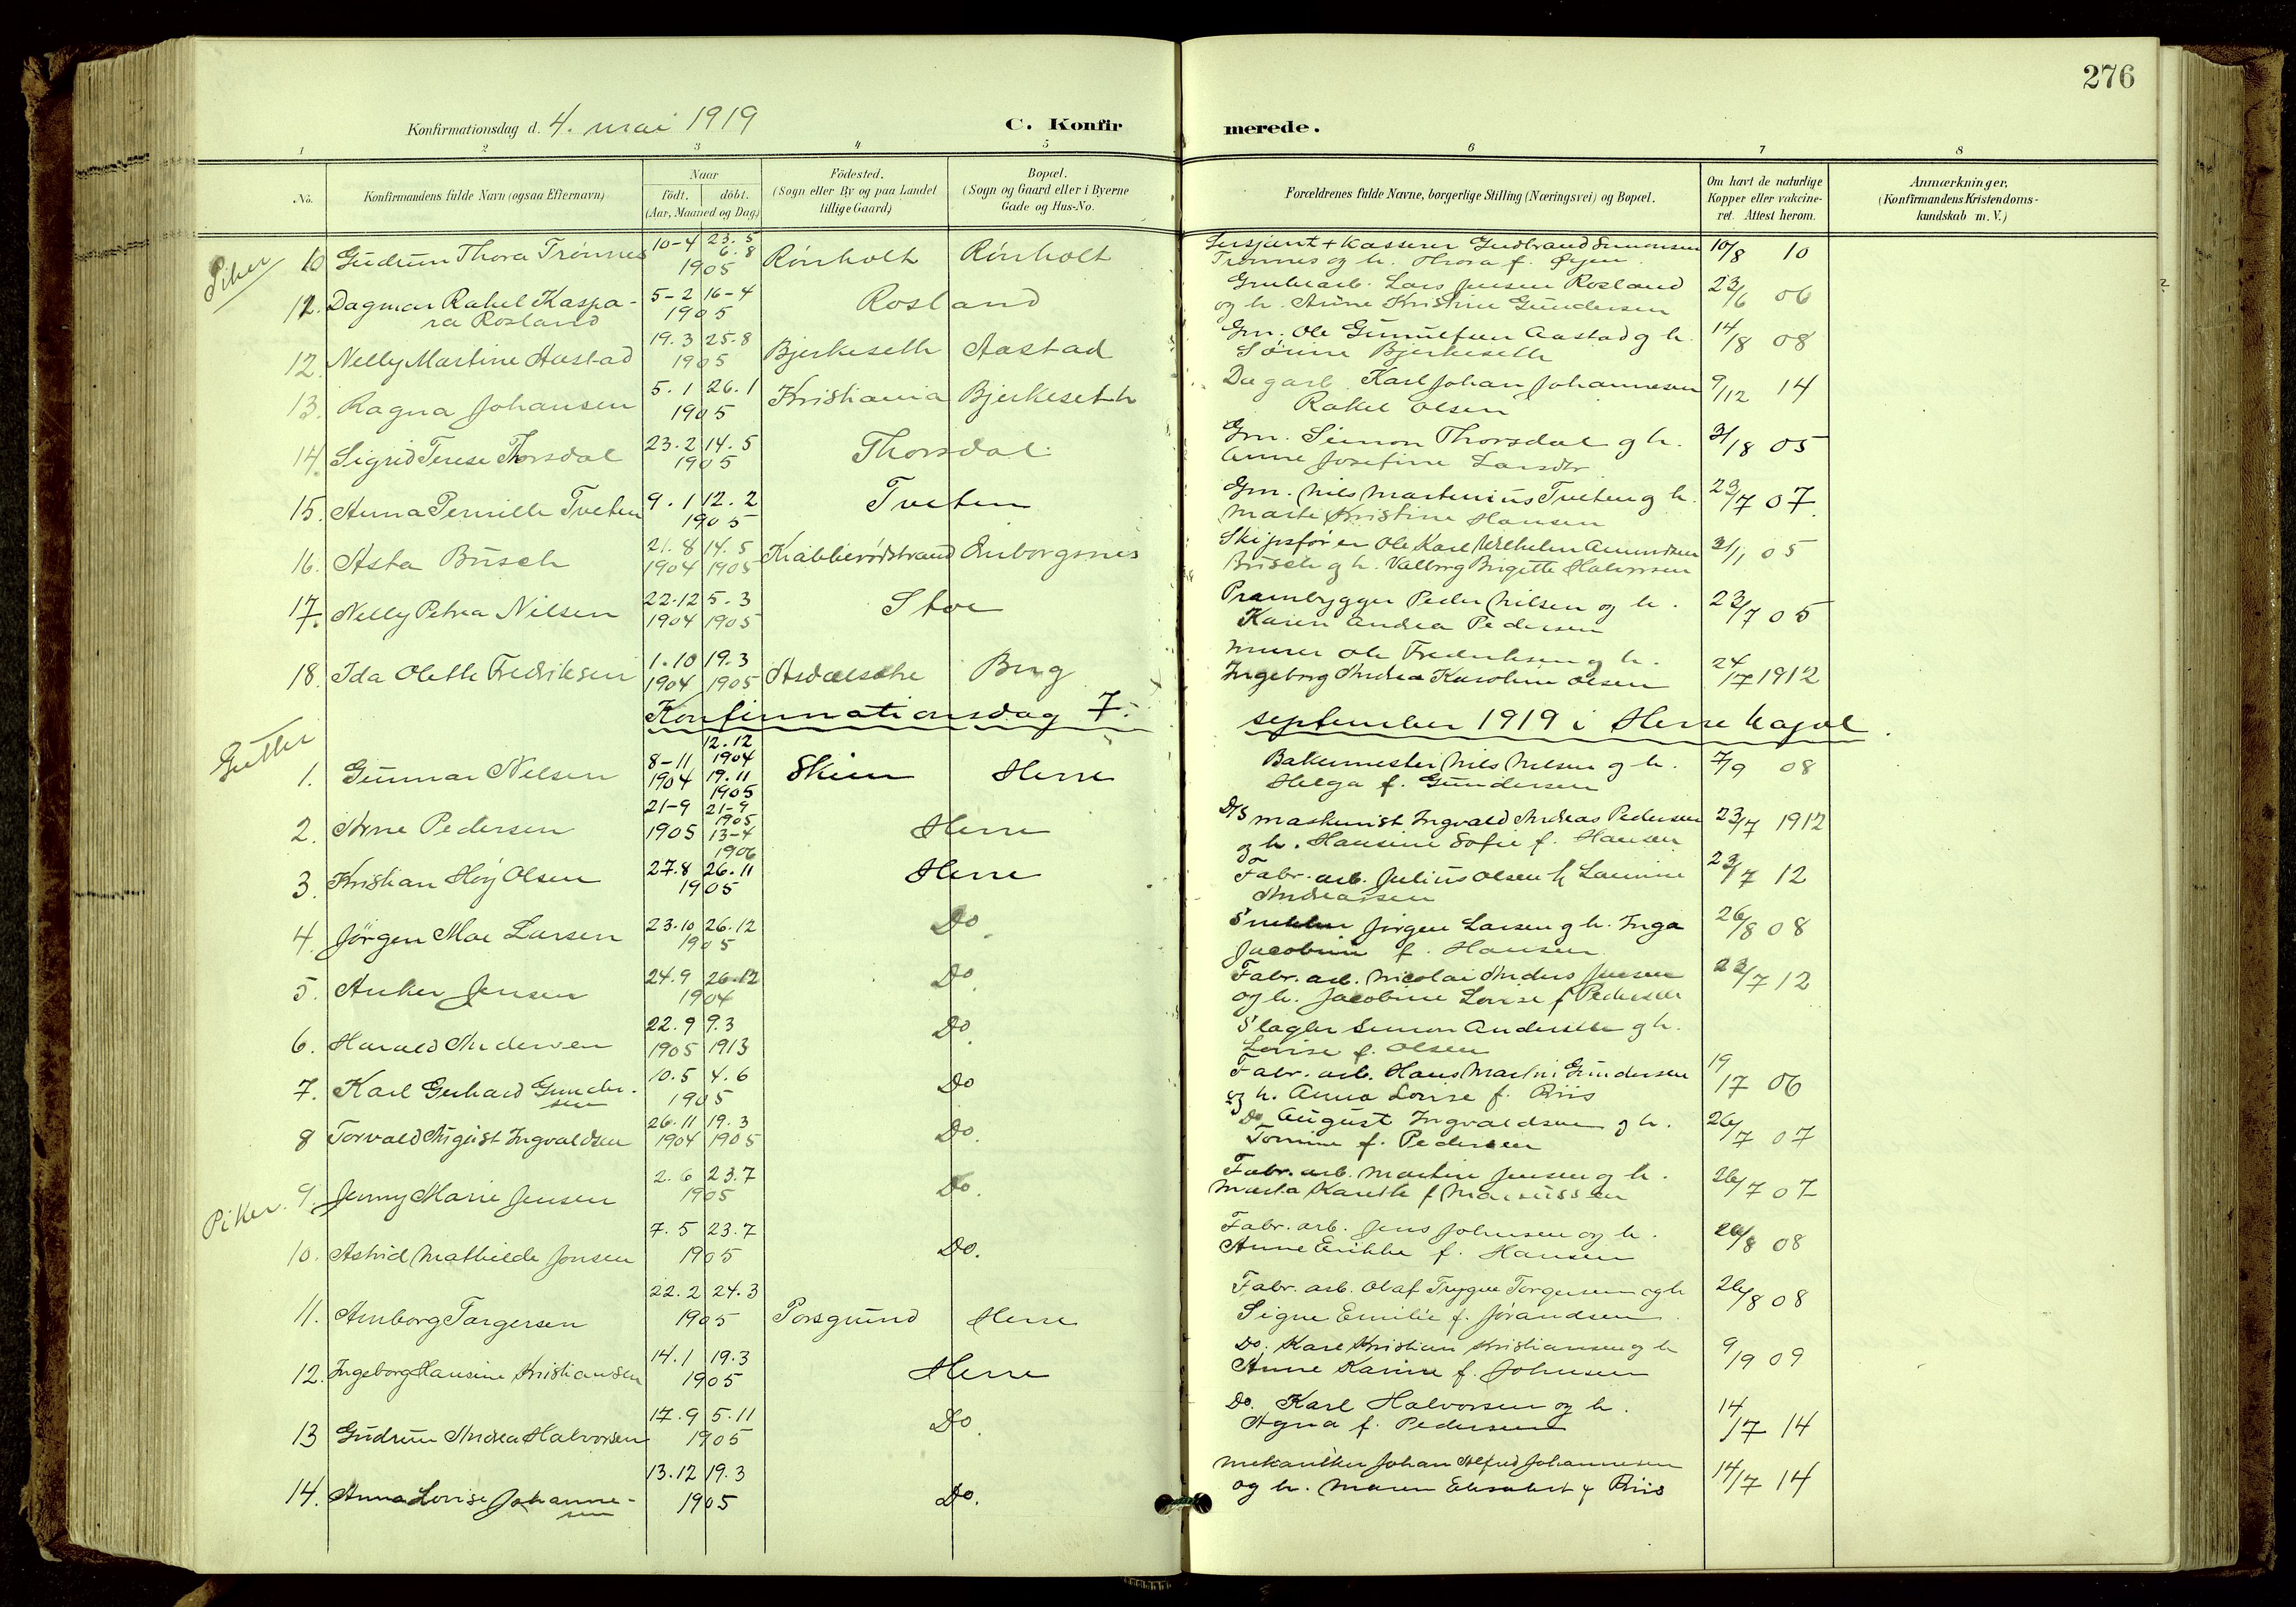 276
Konfirmationsdag d. 4. mai 1919
C. Konfirmerede.
1 2 3 4 5 6 7 8
No.
Konfirmandens fulde Navn (ogsaa Efternavn)
Naar
Födt. döbt.
(Aar, Maaned og Dag)
Födested.
(Sogn eller By og paa Landet
tillige Gaard)
Bopæl.
(Sogn og Gaard eller i Byerne
Gade og Hus-No.
Forældrenes fulde Navne, borgerlige Stilling (Næringsvei) og Bopæl.
Om havt de naturlige
Kopper eller vakcine-
ret. Attest herom.
Anmærkninger,
(Konfirmandens Kristendoms-
kundskab m. V.)
Piker
10 Gudrun Thora Trønnes 10-4 23.5 6.8 1905 Rønholt Rønholt Sersjant + Kasserer Gudbrand Simonsen 10/8 10
Trønnes og h. Thora f.
11. Dagmar Rakel Kaspa- 5-2 16-4 1905 Rosland Grubearb. Lars Jensen Rosland 23/6 06
ra Rosland og h. Anne Kristine Gundersen
12. Nelly Martine Aastad 19.3 25.8 1905 Bjerkeseth Aastad Grn. Ole Gunnulfsen Aastad og h. 14/8 08
Bjerkeseth
13. Ragna Johansen 5.1 26.1 1905 Kristiania Bjerkeseth Dagarb. Karl Johan Johannesen 9/12 14
Rakel Olsen
14. Sigrid Terese Thorsdal 23.2 14.5 1905 Thorsdal Grn. Simon Thorsdal og h. 31/8 05
Anne Josefine Larsdtr
15. Anna Pernille Tveten 9.1 12.2 1905 Tveten Grn. Nils Martinius Tveten og h. 23/7 07
Marte Kristine Hansen
16. Asta Busch 21.8 1904 14.5 1905 Krabberødstrand Enborgsnes Skipsfører Ole Karl Wilhelm Amundsen 31/1 05
Busch og h. Valborg Birgitte Halvorsen
17. Nelly Petrea Nilsen 22.12 1904 5.3 1905 Stoe Prambygger Peder Nilsen og h. 23/7 05
Karen Andrea Pedersen
18. Ida Olette Fredriksen 1.10 1904 19.3 1905 Berg Murer Ole Frederiksen og h. 24/7 1912
Ingeborg Andrea Karoline Olsen
Konfirmationsdag 7. september 1919 i Herre kapel.
Gutter
1. Gunnar Nilsen 8-11 1904 12.12 1904 19.11 1905 Skien Herre Bakermester Nils Nilsen og h. 7/9 08
Helga f. Gundersen
2. Arne Pedersen 21-9 1905 21-9 1905 13-4 1906 Herre D/S maskinist Ingvald Andreas Pedersen 23/7 1912
og h. Hansine Sofie f. Hansen
3. Kristian Høy Olsen 27.8 26.11 1905 Herre Fabr. arb. Julius Olsen h. 23/7 12
Andreassen
4. Jörgen Moe Larsen 23.10 26.12 1905 Do. Snekker Jörgen Larsen og h. Inga 26/8 08
Jacobine f. Hansen
5. Anker Jensen 24.9 26.12 1904 Do. Fabr. arb. Nicolai Anders Jensen 23/7 12
og h. Jacobine Lovise f. Pedersen
6. Harald Andersen 22.9 1905 9.3 1913 Do. Slagter Simon Andersen og h.
Lovise f. Olsen
7. Karl Gerhard Gunder- 10.5 4.6 1905 Do Fabr. arb. Hans Martin Gundersen 19/7 06
sen og h. Anna Lovise f. Riis
8 Torvald August Ingvaldsen 26.11 1904 19.3 1905 Do. Do August Ingvaldsen og h. 26/7 07
Tomine f. Pedersen
Piker.
9. Jenny Marie Jensen 2.6 23.7 1905 Do. Fabr. arb. Martin Jensen og h. 26/7 07
Marta f. Mariussen
10. Astrid Mathilde Jonsen 7.5 23.7 1905 Do. Fabr. arb. Jens Johnsen og h. 26/8 08
Anne Erikke f. Hansen
11. Amborg Torgersen 22.2 24.3 1905 Porsgrund Herre Fabr. arb. Olaf Trygve Torgersen og h 26/8 08
Signe Emilie f. Jörandsen
12. Ingeborg Hansine Kristiansen 14.1 19.3 1905 Herre Do. Kare Kristian Kristiansen og h 9/9 09
Anne Karine f. Johnsen
13 Gudrun Andrea Halvorsen 17.9 5.11 1905 Do. Do. Karl Halvorsen og h. 14/7 14
Agna f. Pedersen
14. Anna Lovise Johanne- 13.12 19.3 1905 Do. Mekaniker Johan Alfred Johannesen 14/7 14
sen og h. Maren Elisabet f. Riis